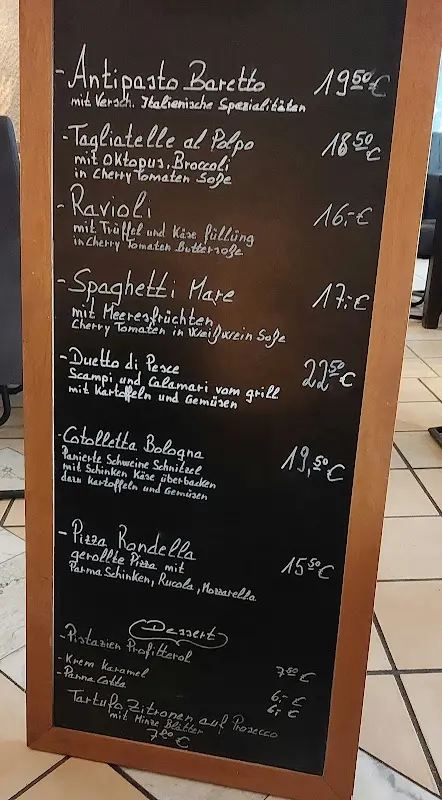 - Antipasto Baretto 19⁵⁰€
mit Versch. Italienische Spezialitäten
- Tagliatelle al Polpo 18⁵⁰€
mit Oktopus, Broccoli
in Cherry Tomaten Soße
- Ravioli 16,-€
mit Trüffel und Käse füllüng
in Cherry Tomaten Buttersoße
- Spaghetti Mare 17,-€
mit Meeresfrüchten
Cherry Tomaten in Weißwein Soße
- Duetto di Pesce 22⁵⁰€
Scampi und Calamari vom grill
mit Kartoffeln und Gemüsen
- Cotolletta Bologna 19,⁵⁰€
Panierte Schweine Schnitzel
mit Schinken Käse überbacken
dazu Kartoffeln und Gemüsen
- Pizza Rondella 15⁵⁰€
gerollte Pizza mit
Parma Schinken, Rucola, Mozzarella
Dessert
- Pistazien Profitterol 7⁵⁰€
- Krem Karamel 6,-€
- Panna Cotta 6,-€
Tartufo Zitronen auf Prosecco
mit Minze Blätter
7⁸⁰€